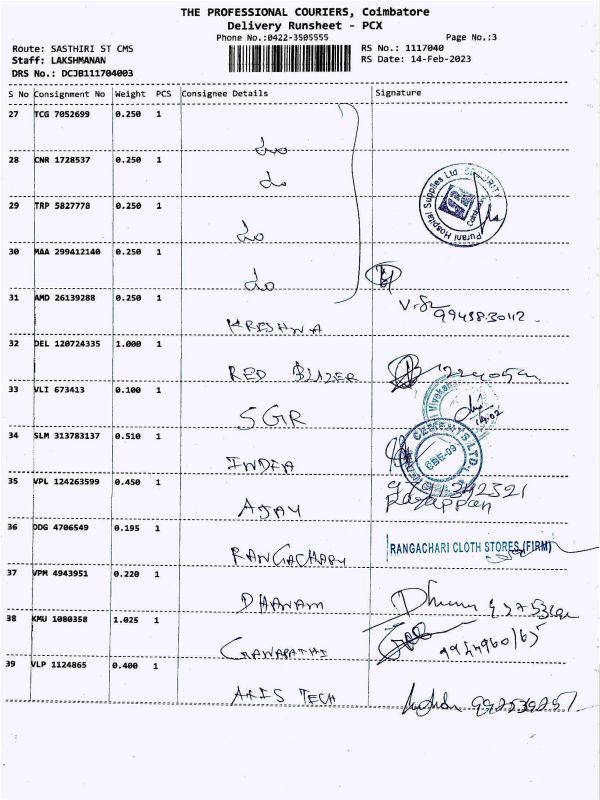 THE PROFESSIONAL COURIERS, Coimbatore
Delivery Runsheet - PCX
Phone No.:0422-3505555
Page No.:3
Route: SASTHIRI ST CMS
RS No.: 1117040
Staff: LAKSHMANAN
RS Date: 14-Feb-2023
DRS No.: DCJB111704003
S No Consignment No Weight PCS Consignee Details Signature
27 TCG 7052699 0.250 1
28 CNR 1728537 0.250 1
Purani Hospital Supplies Ltd SECURITY
29 TRP 5827778 0.250 1
30 MAA 299412140 0.250 1
31 AMD 26139288 0.250 1
KRESHNA
32 DEL 120724335 1.000 1
RED BLAZER
33 VLI 673413 0.100 1
SGR
34 SLM 313783137 0.510 1
INDIA
CEMENTS LTD.
CBE-09
35 VPL 124263599 0.450 1
AJAY
Rajappan
36 DDG 4706549 0.195 1
RANGACHARY
RANGACHARI CLOTH STORES (FIRM)
37 VPM 4943951 0.220 1
DHANAM
38 KMU 1080358 1.025 1
GANAPATHI
39 VLP 1124865 0.400 1
ARIS TECH